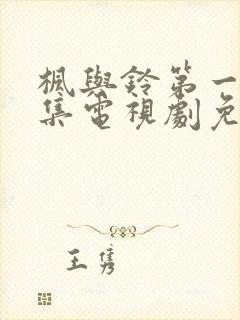 楓與鈴第一
集電視劇免
王隽